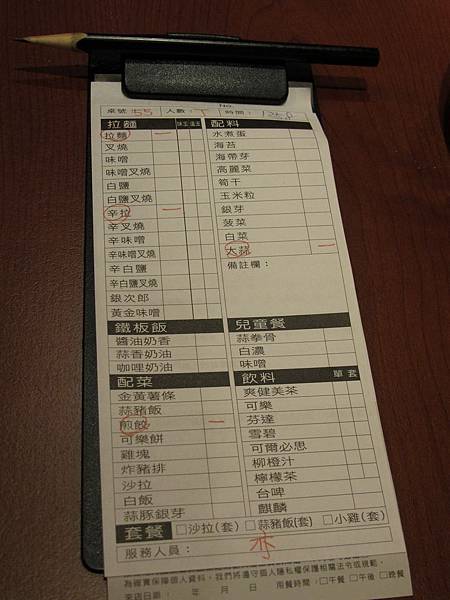 No.
桌號：55 人數： 時間：
拉麵
拉麵 一
叉燒
味噌
味噌叉燒
白鹽
白鹽叉燒
辛拉 一
辛叉燒
辛味噌
辛味噌叉燒
辛白鹽
辛白鹽叉燒
銀次郎
黃金味噌
鐵板飯
醬油奶香
蒜香奶油
咖哩奶油
配菜
金黃薯條
蒜豬飯
煎餃 一
可樂餅
雞塊
炸豬排
沙拉
白飯
蒜豚銀芽
配料
水煮蛋
海苔
海帶芽
高麗菜
筍干
玉米粒
銀芽
菠菜
白菜
大蒜 一
備註欄：
兒童餐
蒜拳骨
白濃
味噌
飲料 單 套
爽健美茶
可樂
芬達
雪碧
可爾必思
柳橙汁
檸檬茶
台啤
麒麟
套餐 □沙拉(套) □蒜豬飯(套) □小雞(套)
服務人員：
為確實保障個人資料，我們將遵守個人隱私權保護相關法令或規範。
來店日期： 年 月 日 用餐時間：□午餐 □午後 □晚餐